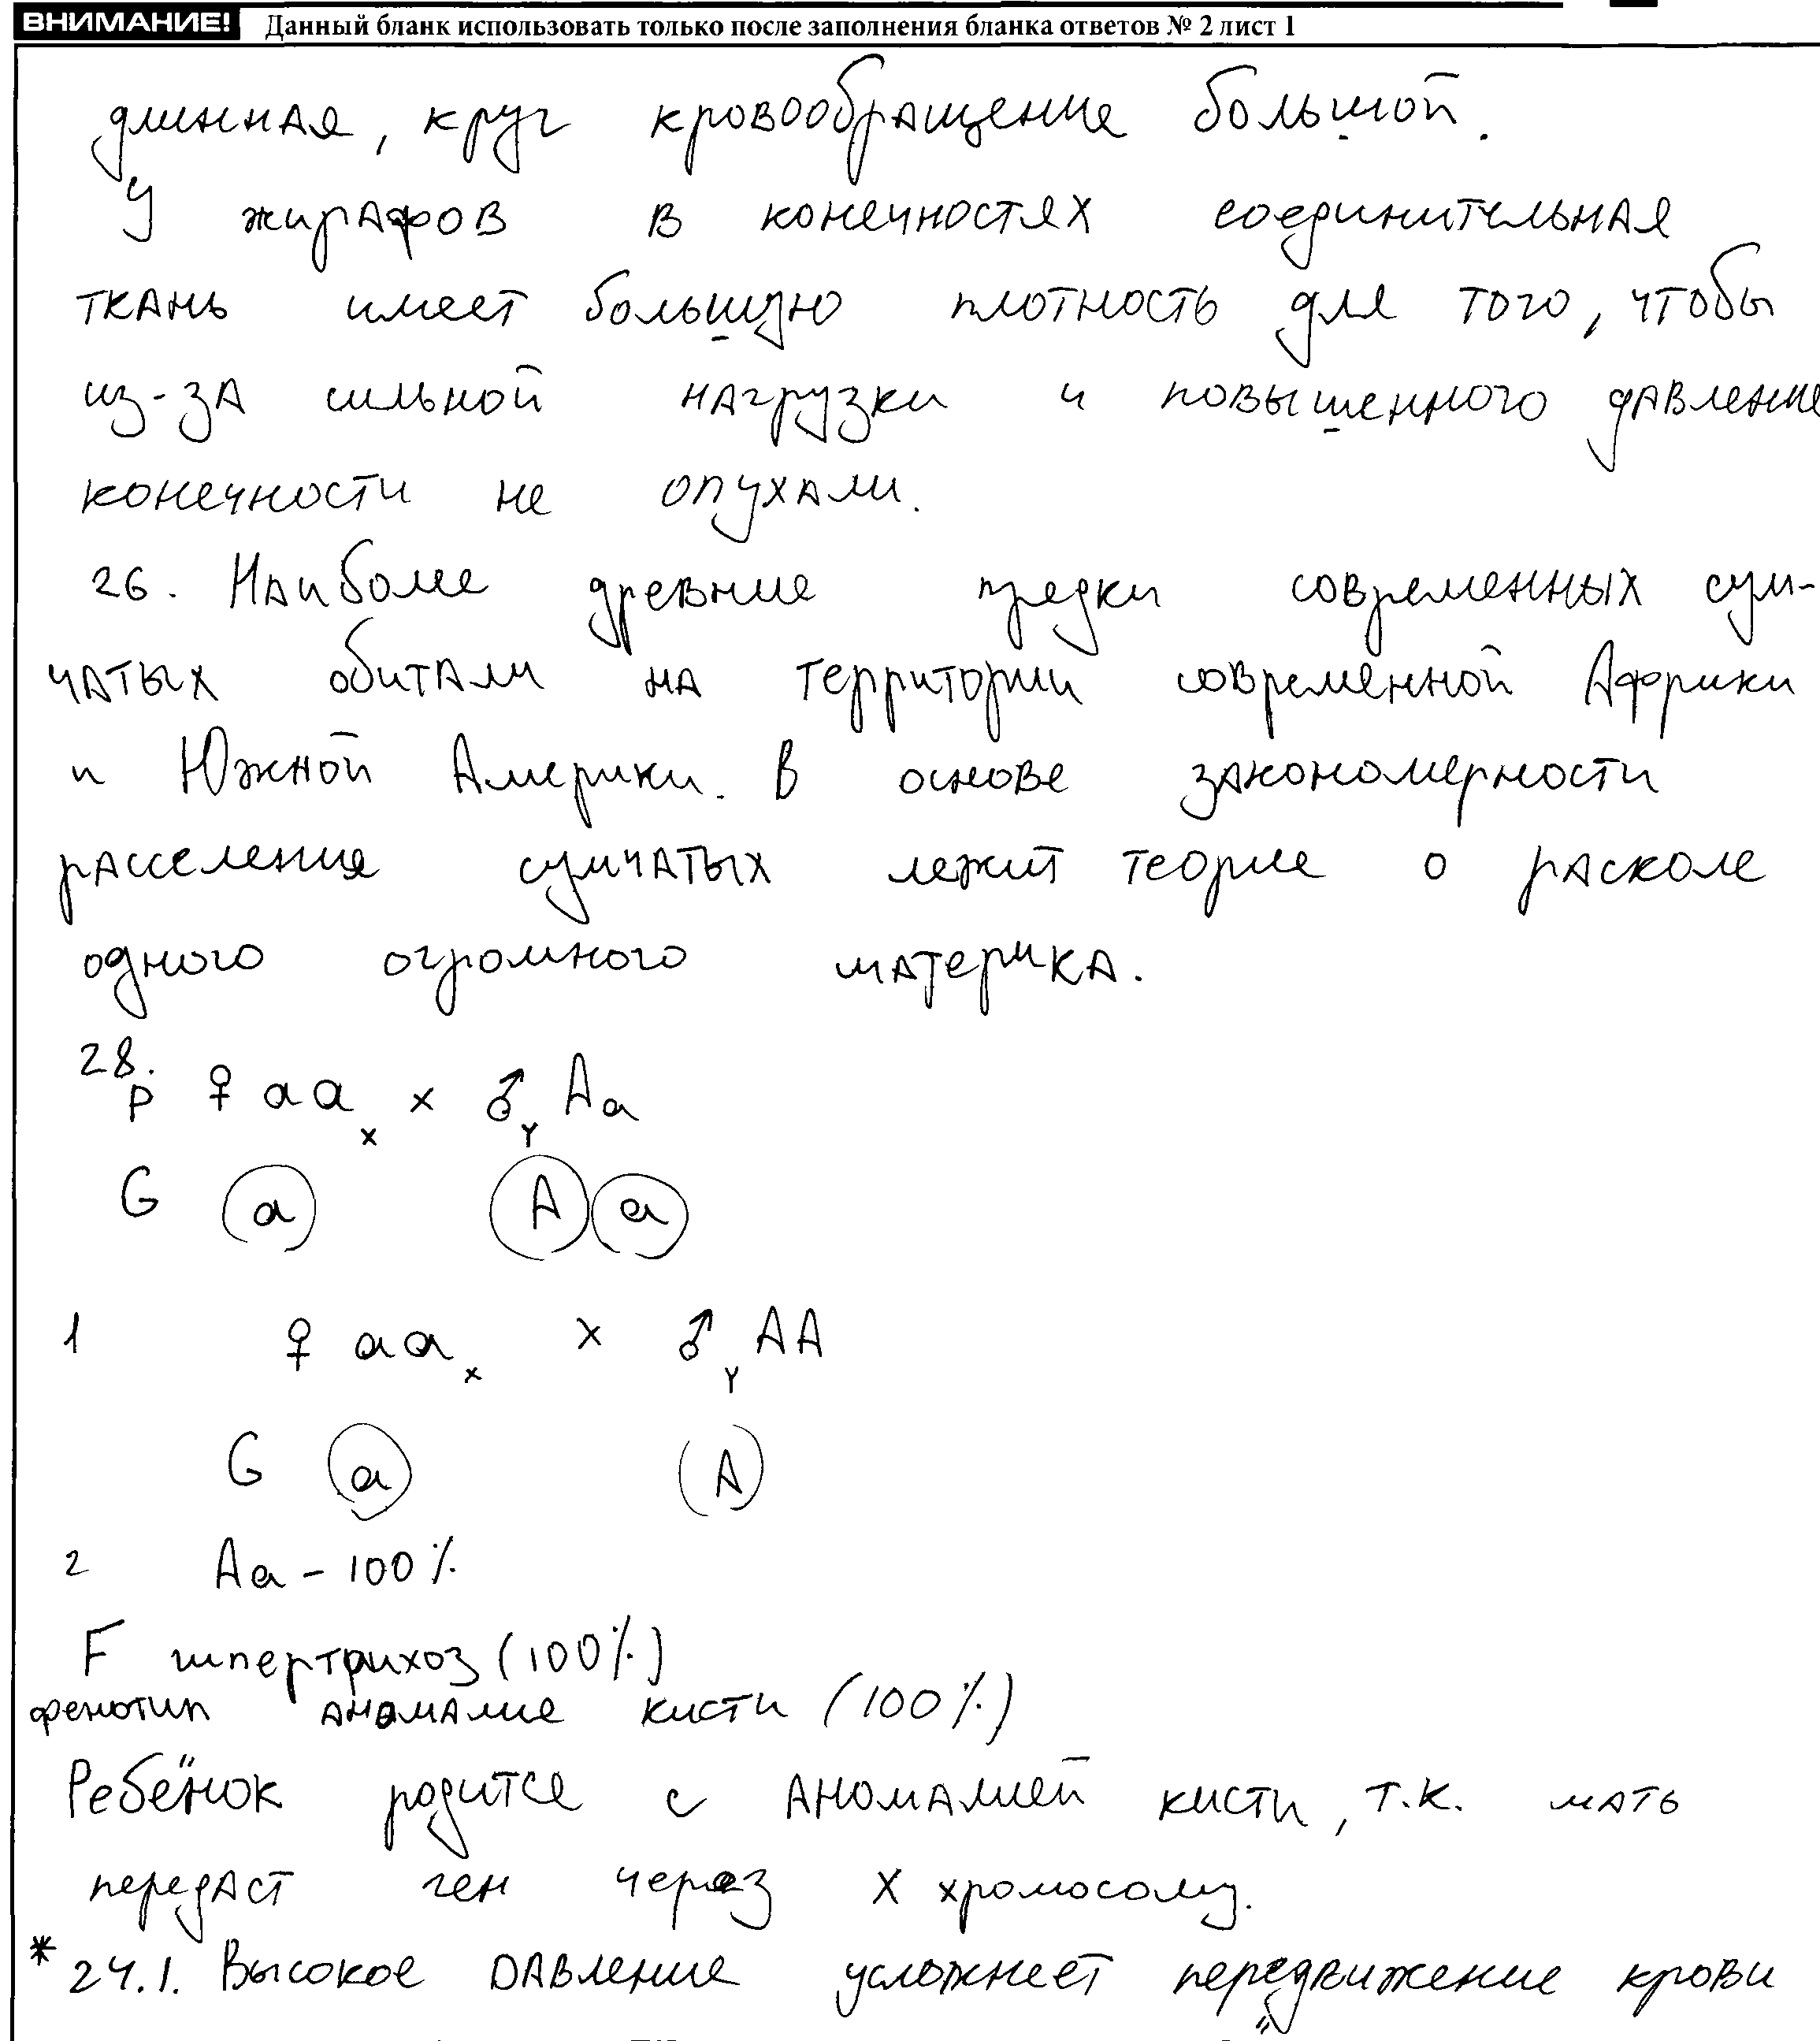 ВНИМАНИЕ! Данный бланк использовать только после заполнения бланка ответов № 2 лист 1
длинная, круг кровообращение большой.
У жирафов в конечностях соединительная
ткань имеет большую плотность для того, чтобы
из-за сильной нагрузки и повышенного давление
конечности не опухали.
26. Наиболее древние предки современных сум-
чатых обитали на территории современной Африки
и Южной Америки. В основе закономерности
расселения сумчатых лежит теория о расколе
одного огромного материка.
28.
P ♀ aa x × ♂ Y Aa
G (a) (A) (a)
1 ♀ aa x × ♂ Y AA
G (a) (A)
2 Aa - 100%
F гипертрихоз (100%)
фенотип аномалия кисти (100%)
Ребёнок родится с аномалией кисти, т.к. мать
передаст ген через X хромосому.
* 24.1. Высокое давление усложняет передвижение крови